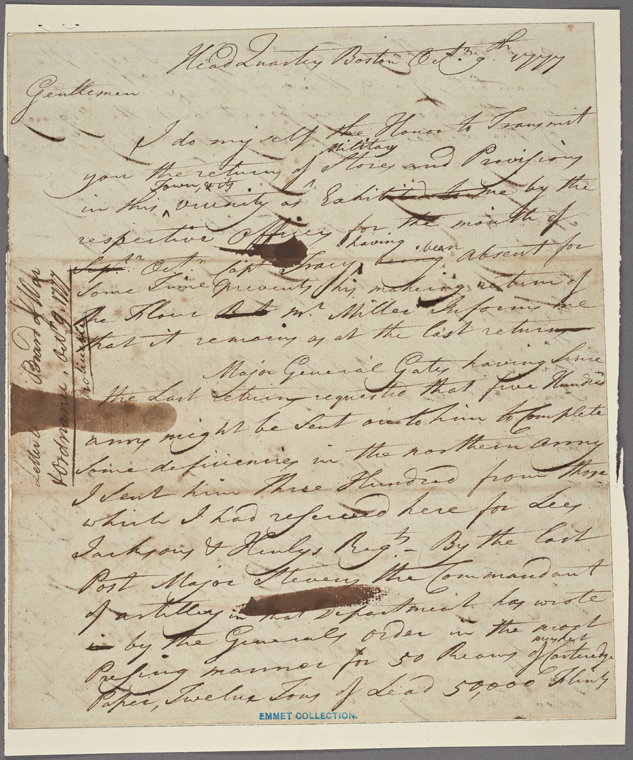 Head Quarters Boston Octr. 9th 1777
Gentlemen
I do my self the Honor to Transmit
you the return of Military Stores and Provisions
in this Town & its vicinity as Exhibited to me by the
respective officers for the month of
Septr. Octr. Capt. Tracy having been absent for
Some Time prevents his making return of
the Flour But mr. Miller Informs me
that it remains as at the last return
Major General Gates having Since
the Last return requested that five Hundred
arms might be Sent on to him to Complete
Some deficiencies in the northern army
I sent him Three Hundred from those
which I had reserved here for Lees
Jacksons & Henlys Regts. By the last
Post Major Stevens the Commandant
of artillery in that Department has wrote
by the Generals order in the most
Pressing manner for 50 Reams of musket Cartridge
Paper, Twelve Tons of Lead 50,000 Flints
Letter to Board of War
& Ordnance. Octr. 9. 1777
EMMET COLLECTION.